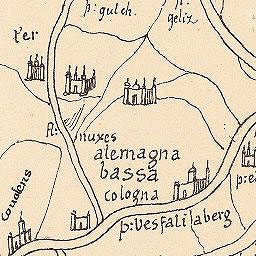 p: gulch.
geliz
r'er
fl:
nuxes
alemagna
bassa
cologna
coudens
p: vesfalilaberg